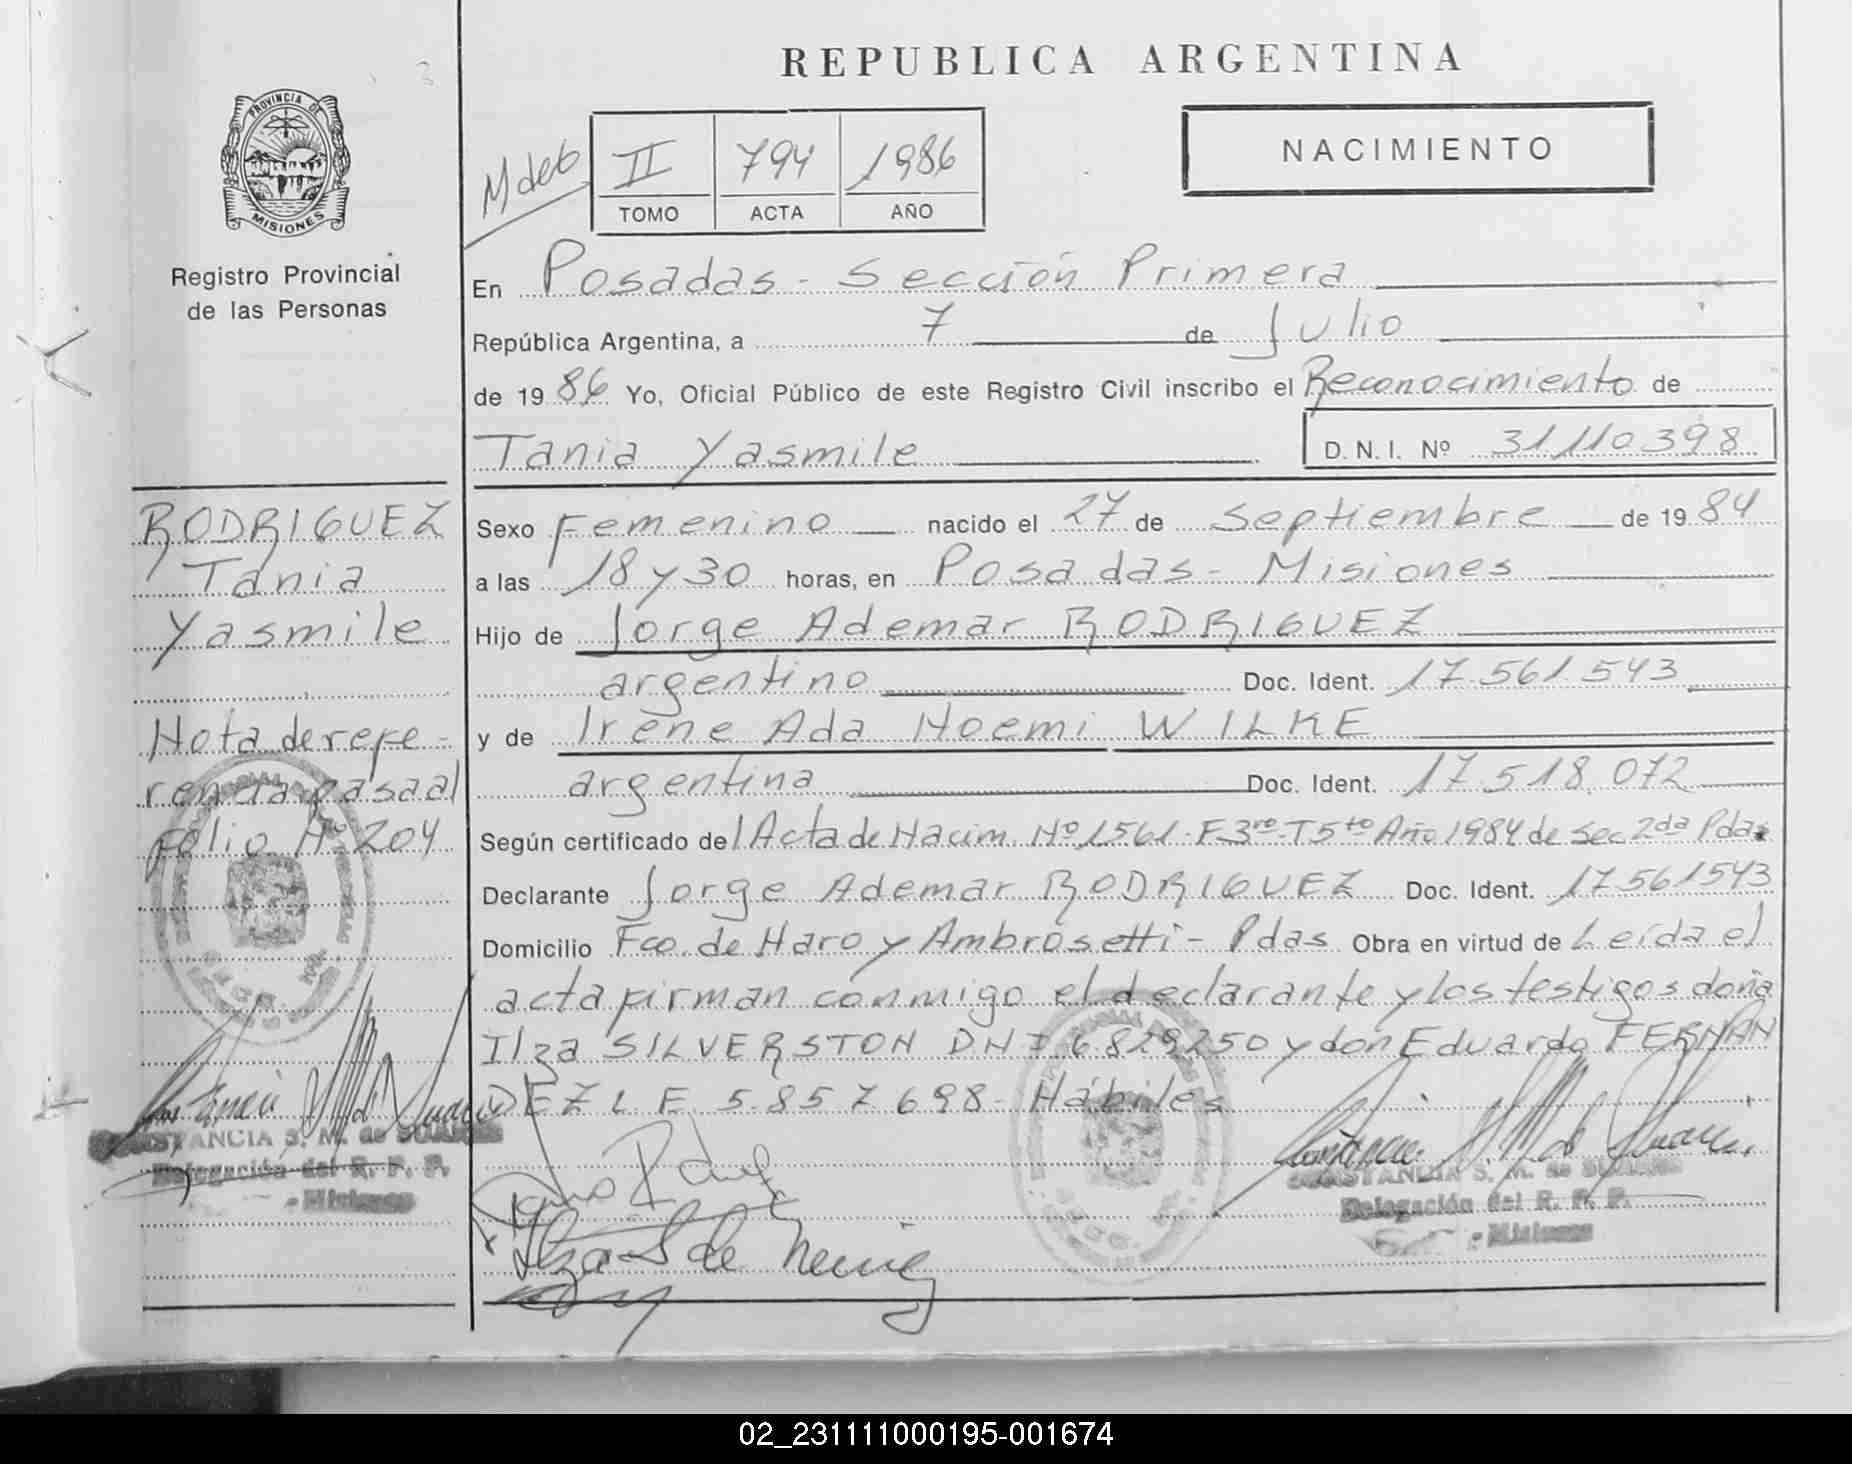 REPUBLICA ARGENTINA
PROVINCIA DE
MISIONES
Registro Provincial
de las Personas
II 794 1986
TOMO ACTA AÑO
NACIMIENTO
En Posadas - Sección Primera
República Argentina, a 7 de Julio
de 1986 Yo, Oficial Público de este Registro Civil inscribo el Reconocimiento de
Tania Yasmile D. N. I. Nº 31110398
RODRIGUEZ
Tania
Yasmile
Nota de refe-
rencia pasa al
folio Nº 204
Sexo Femenino nacido el 27 de Septiembre de 1984
a las 18 y 30 horas, en Posadas - Misiones
Hijo de Jorge Ademar RODRIGUEZ
argentino Doc. Ident. 17.561.543
y de Irene Ada Noemi WILKE
argentina Doc. Ident. 17.518.072
Según certificado del Acta de Nacim. Nº 1561-F3ro-T5to Año 1984 de Sec 2da Pdas
Declarante Jorge Ademar RODRIGUEZ Doc. Ident. 17561543
Domicilio Fco. de Haro y Ambrosetti - Pdas Obra en virtud de Leída el
acta firman conmigo el declarante y los testigos doña
Ilza SILVERSTON DNI 6829250 y don Eduardo FERNAN
DEZ L E 5.857698- Hábiles
CONSTANCIA S. M. de SUAREZ
Delegación del R. P. P.
- Misiones
CONSTANCIA S. M. de SUAREZ
Delegación del R. P. P.
- Misiones
Ilza S de
02_231111000195-001674